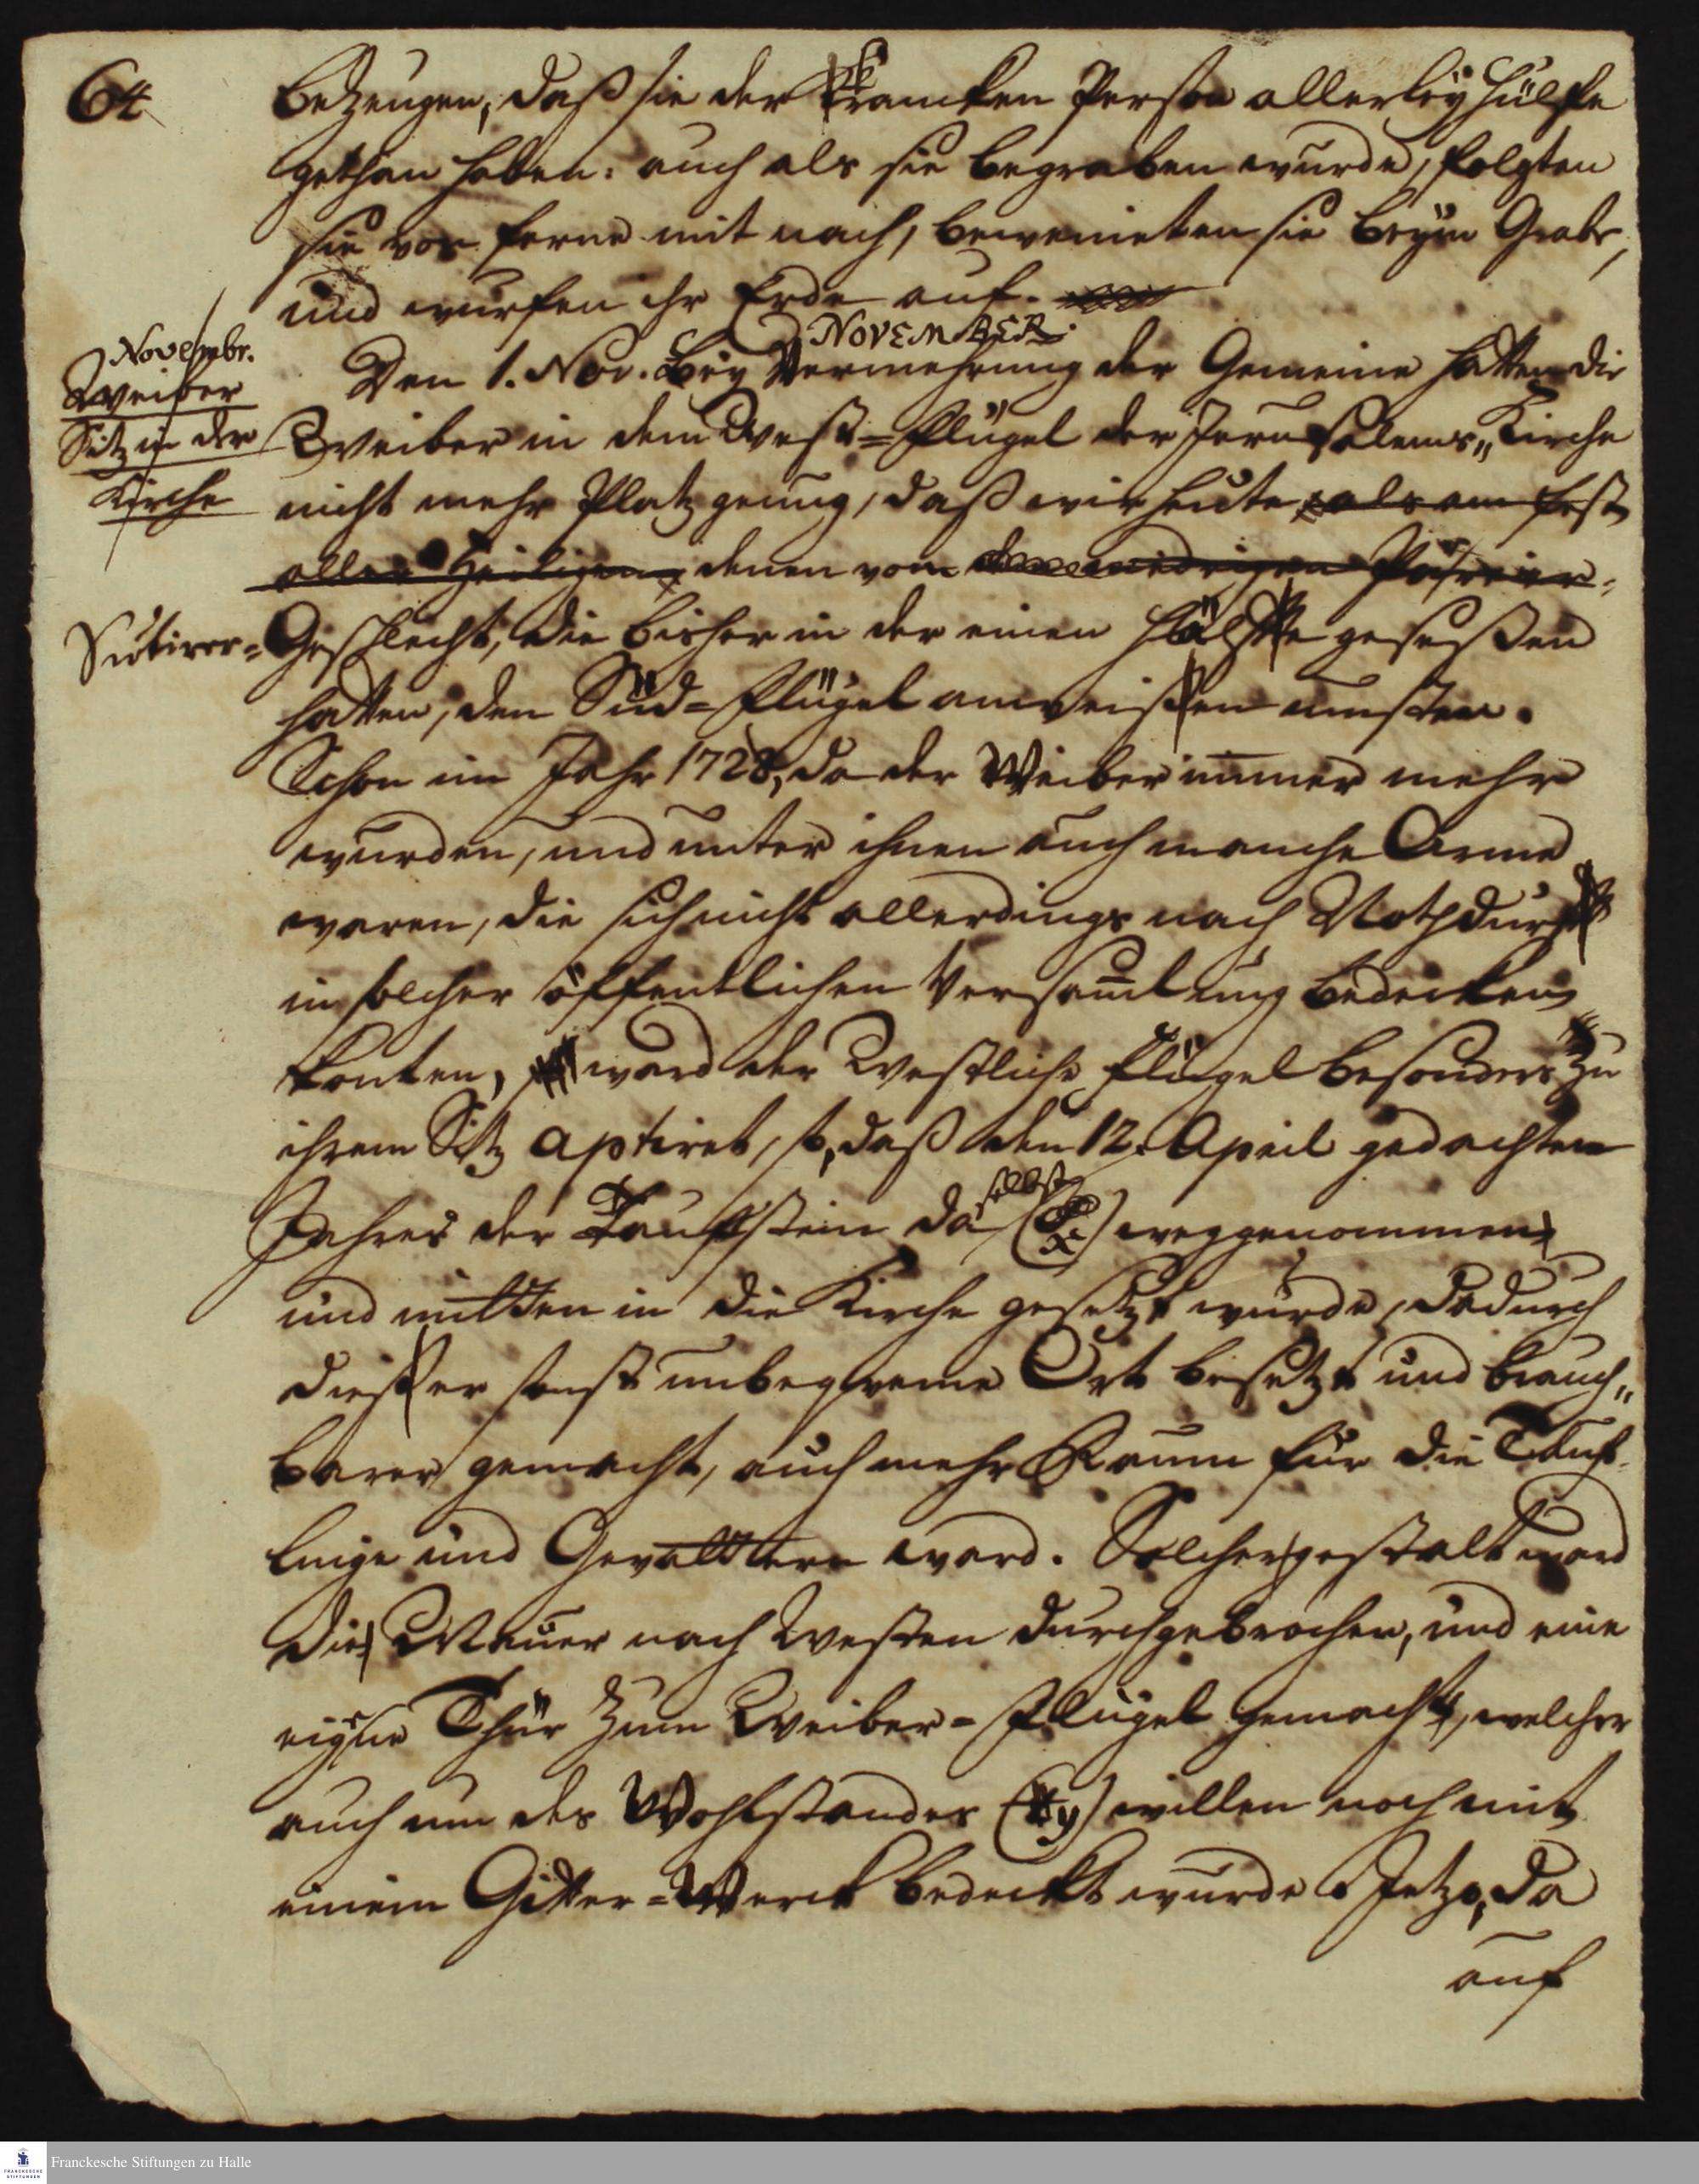 64
bezeugen, daß sie der krancken Person allerley Hülfe
gethan haben: auch als sie begraben wurde, folgten
sie von ferne mit nach, beweineten sie beym Grabe,
und wurfen ihr Erde auf.
NOVEMBER.
Novembr.
Weiber
Sitz in der
Kirche
Den 1. Nov. Bey Vermehrung der Gemeine hatten die
Weiber in dem West-Flügel der Jerusalems„Kirche
nicht mehr Platz genung, daß wir heute, als am Fest
aller Heiligen, denen vom niedrigen Pareier-
Sutirer-Geschlecht, die bisher in der einen Hälfte gesessen
hatten, den Süd-Flügel anweisen musten.
Schon im Jahr 1728, da der Weiber immer mehr
wurden, und unter ihnen auch manche Arme
waren, die sich nicht allerdings nach Nothdurft
in solcher öffentlichen Versamlung bedecken
konten, ward der Westliche Flügel besonders zu
ihrem Sitz aptiret, so, daß den 12. April gedachten
Jahres der Taufstein daselbst (x) weggenommen
und mitten in die Kirche gesetzt wurde, dadurch
dieser sonst unbequeme Ort besetzt und brauch„
barer gemacht, auch mehr Raum für die Täuf-
linge und Gevattern ward. Solchergestalt ward
die Mauer nach Westen durchgebrochen, und eine
eigene Thür zum Weiber-Flügel gemacht, welcher
auch um des Wohlstandes (y) willen noch mit
einem Gitter-Werck bedeckt wurde. Jetzo, da
auf
Franckesche Stiftungen zu Halle